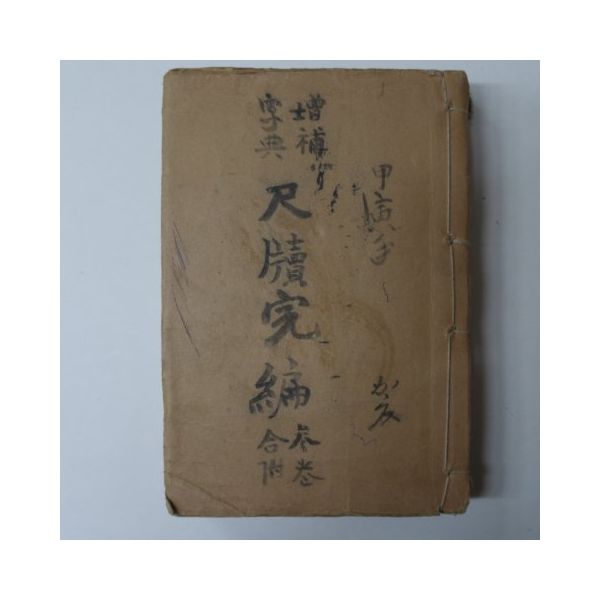 甲寅年
增補
字典
尺牘完編
參卷
合附